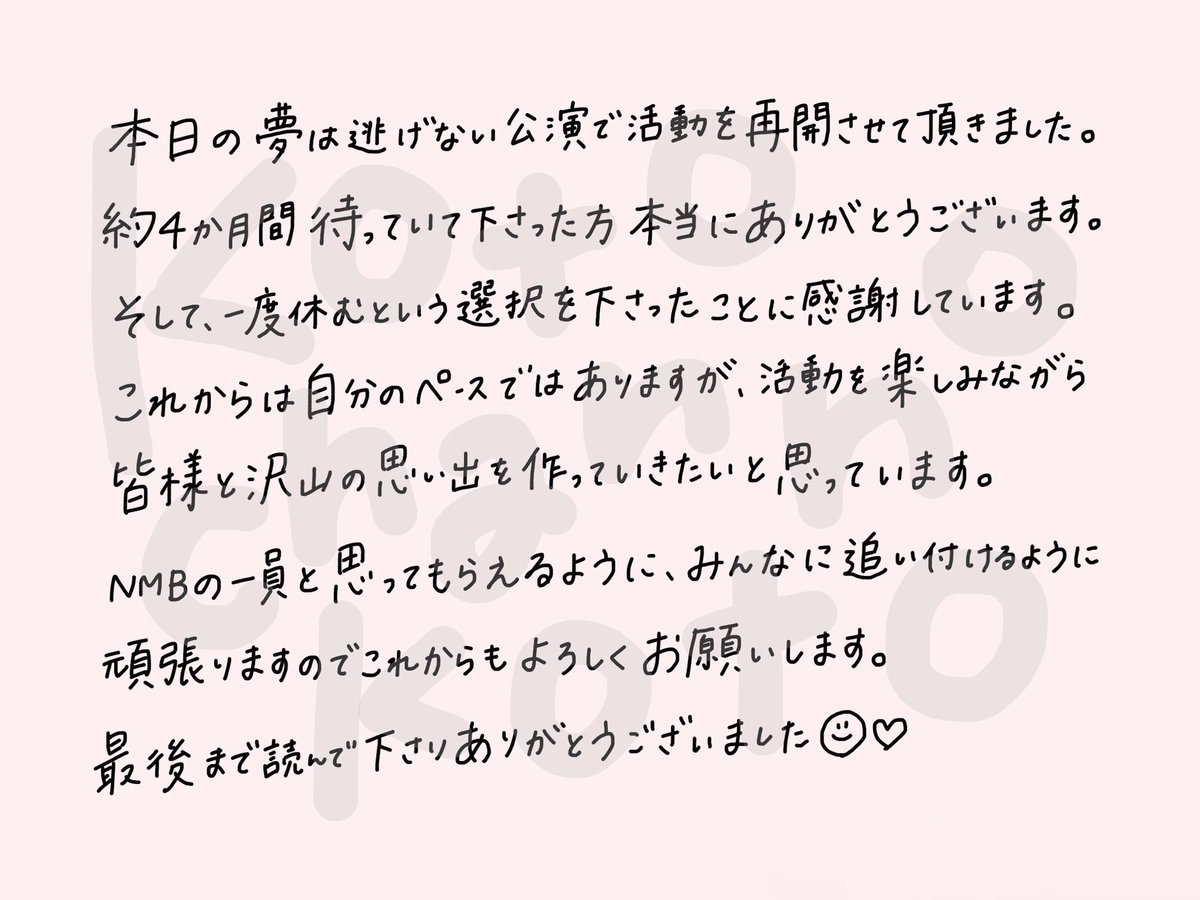 本日の夢は逃げない公演で活動を再開させて頂きました。
約4か月間 待っていて下さった方 本当にありがとうございます。
そして、一度休むという選択を下さったことに感謝しています。
これからは自分のペースではありますが、活動を楽しみながら
皆様と沢山の思い出を作っていきたいと思っています。
NMBの一員と思ってもらえるように、みんなに追い付けるように
頑張りますのでこれからもよろしくお願いします。
最後まで読んで下さりありがとうございました☺♡
Koto
charn
koto